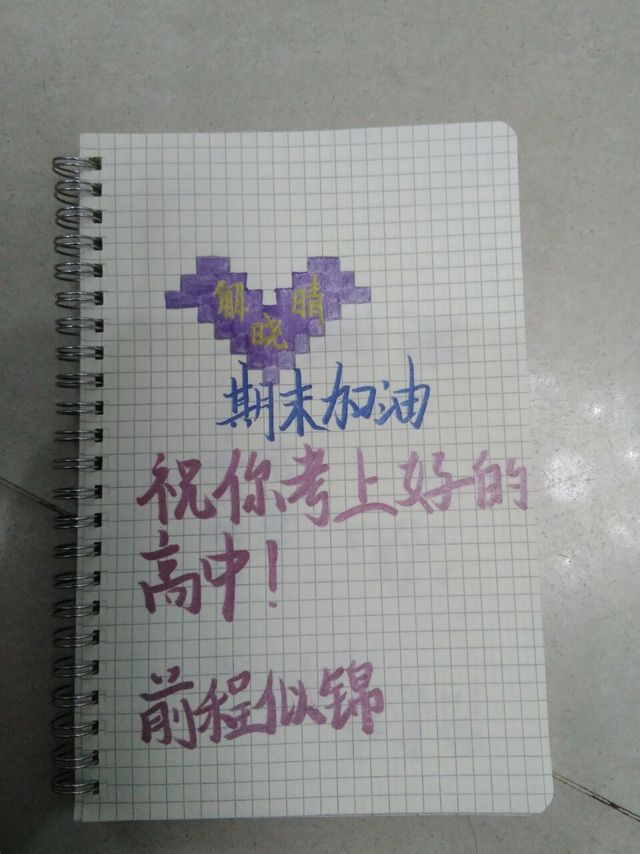 解晓晴
期末加油
祝你考上好的
高中！
前程似锦